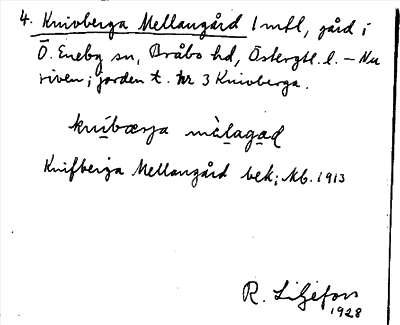 4. Knivberga Mellangård 1 mtl, gård i
Ö. Eneby sn, Bråbo hd, Östergtl. l. – Nu
riven; jorden t. Nr 3 Knivberga.
knibærja mèlagad
Knifberga Mellangård bek; kb. 1913
R. Liljefors
1928